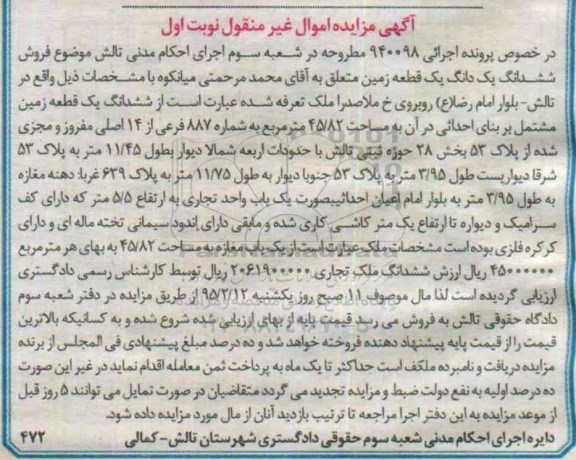 آگهی مزایده اموال غیر منقول نوبت اول
در خصوص پرونده اجرائی ۹۴۰۰۹۸ مطروحه در شعبه سوم اجرای احکام مدنی تالش موضوع فروش
ششدانگ یک دانگ یک قطعه زمین متعلق به آقای محمد مرحمتی میانکوه با مشخصات ذیل واقع در
تالش- بلوار امام رضا(ع) روبروی خ ملاصدرا ملک تعرفه شده عبارت است از ششدانگ یک قطعه زمین
مشتمل بر بنای احداثی در آن به مساحت ۴۵/۸۲ مترمربع به شماره ۸۸۷ فرعی از ۱۴ اصلی مفروز و مجزی
شده از پلاک ۵۳ بخش ۲۸ حوزه ثبتی تالش با حدودات اربعه شمالا دیوار بطول ۱۱/۴۵ متر به پلاک ۵۳
شرقا دیواریست طول ۳/۹۵ متر به پلاک ۵۳ جنوبا دیوار به طول ۱۱/۷۵ متر به پلاک ۶۳۹ غربا: دهنه مغازه
به طول ۳/۹۵ متر به بلوار امام اعیان احداثیبصورت یک باب واحد تجاری به ارتفاع ۵/۵ متر که دارای کف
سرامیک و دیواره تا ارتفاع یک متر کاشی کاری شده و مابقی دارای اندود سیمانی تخته ماله ای و دارای
کرکره فلزی بوده است مشخصات ملک عبارت است از یک باب مغازه به مساحت ۴۵/۸۲ به بهای هر مترمربع
۴۵۰۰۰۰۰۰ ریال ارزش ششدانگ ملک تجاری ۲۰۶۱۹۰۰۰۰۰ ریال توسط کارشناس رسمی دادگستری
ارزیابی گردیده است لذا مال موصوف ۱۱ صبح روز یکشنبه ۹۵/۲/۱۲ از طریق مزایده در دفتر شعبه سوم
دادگاه حقوقی تالش به فروش می رسد قیمت پایه از بهای ارزیابی شده شروع شده و به کسانیکه بالاترین
قیمت را از قیمت پایه پیشنهاد دهنده فروخته خواهد شد و ده درصد مبلغ پیشنهادی فی المجلس از برنده
مزایده دریافت و نامبرده ملکف است حداکثر تا یک ماه به پرداخت ثمن معامله اقدام نماید در غیر این صورت
ده درصد اولیه به نفع دولت ضبط و مزایده تجدید می گردد متقاضیان در صورت تمایل می توانند ۵ روز قبل
از موعد مزایده به این دفتر اجرا مراجعه تا ترتیب بازدید آنان از مال مورد مزایده داده شود.
دایره اجرای احکام مدنی شعبه سوم حقوقی دادگستری شهرستان تالش- کمالی ۴۷۲